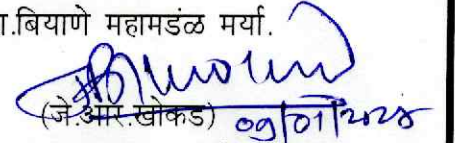 ा.बियाणे महामडंळ मर्या.
(जे.आर.खोकड) 09/01/2024